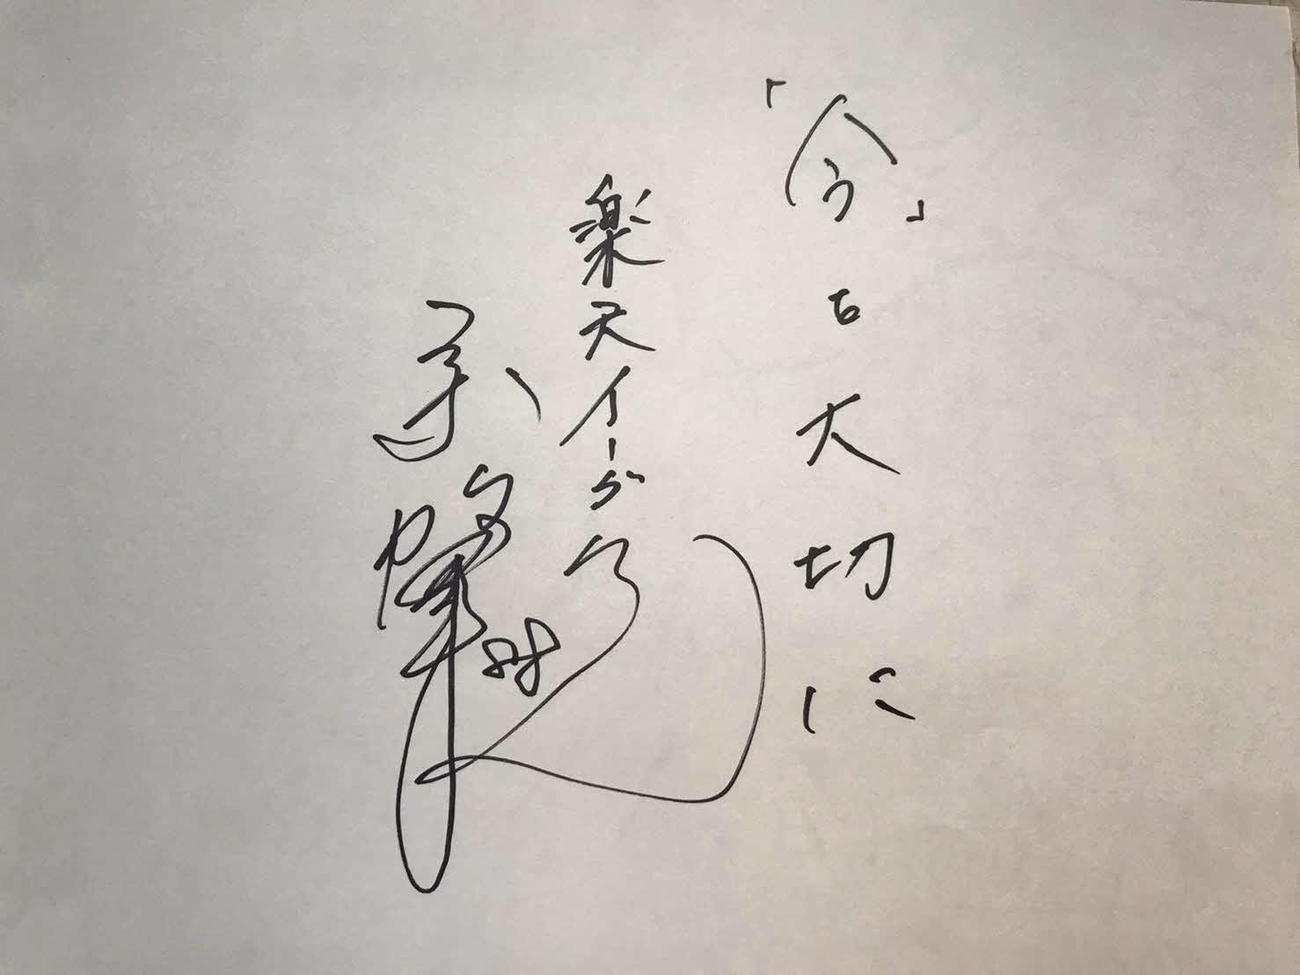 「今」を大切に
楽天イーグルス
88